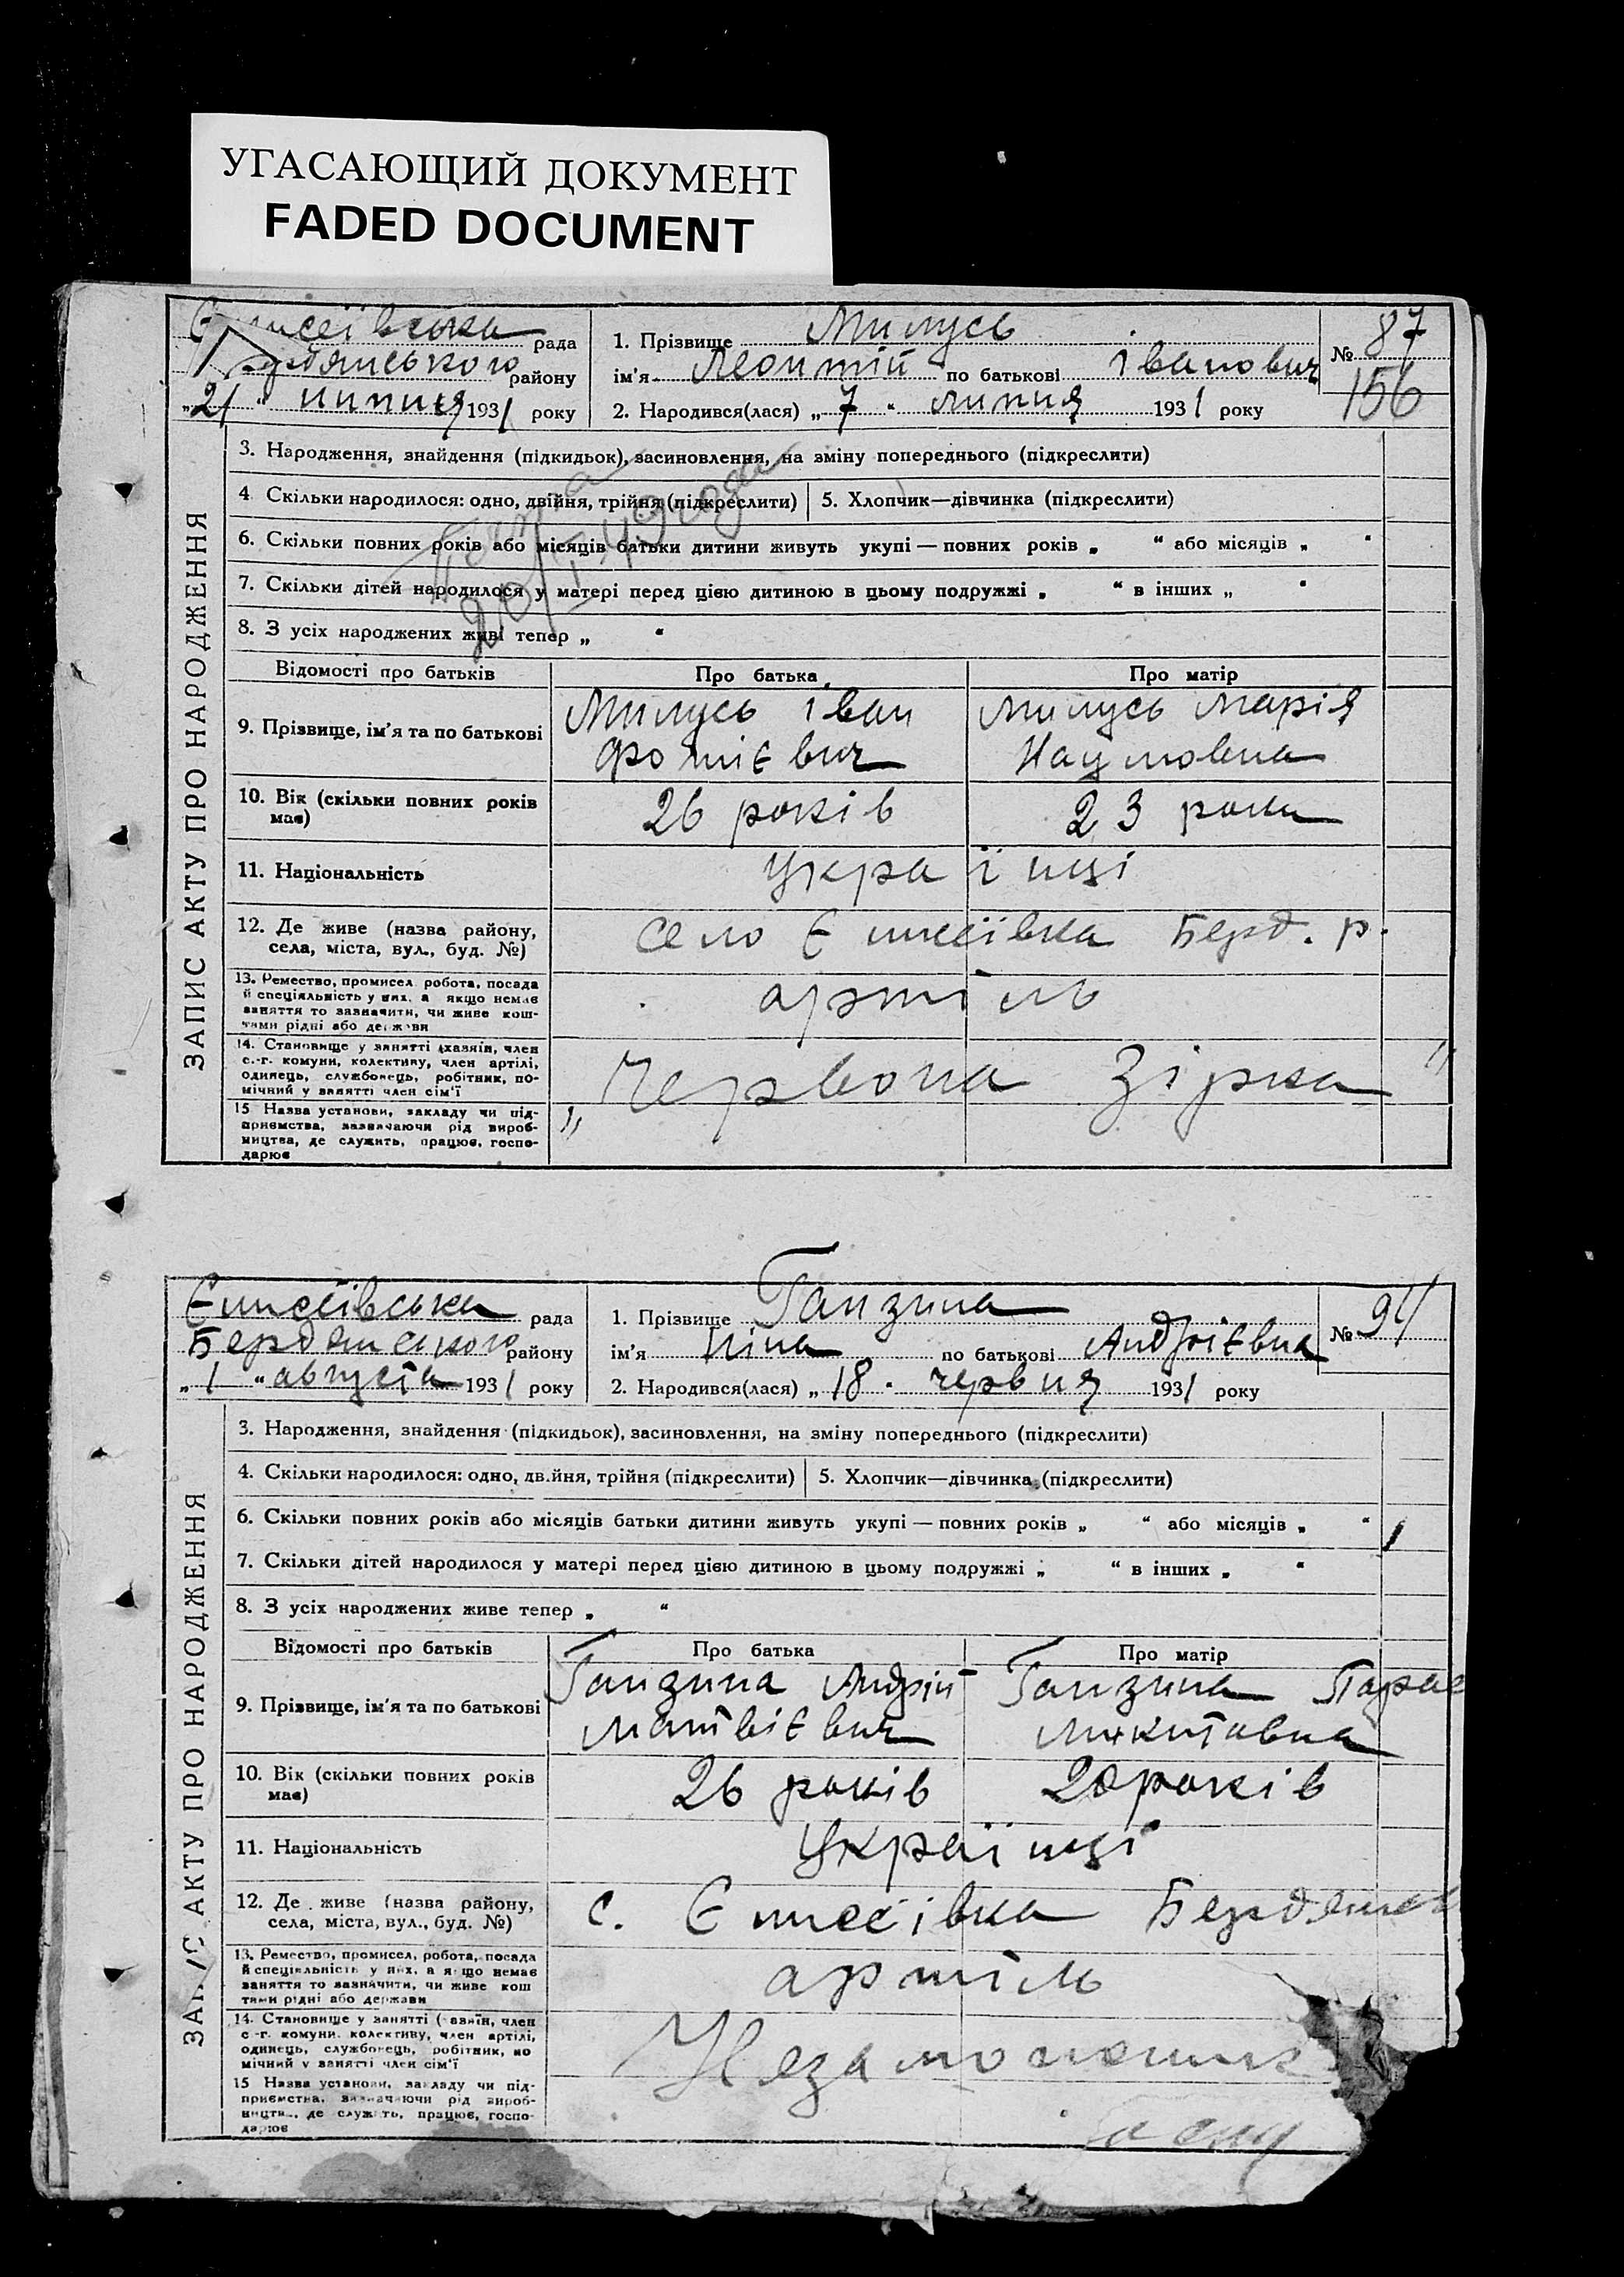 УГАСАЮЩИЙ ДОКУМЕНТ
FADED DOCUMENT
Єлисеївська рада
Бердянського району
„21“ липня 1931 року
1. Прізвище Милусь
ім'я Леонтій по батькові Іванович
2. Народився(лася) „7“ липня 1931 року
№ 87
156
ЗАПИС АКТУ ПРО НАРОДЖЕННЯ
3. Народження, знайдення (підкидьок), засиновлення, на зміну попереднього (підкреслити)
4. Скільки народилося: одно, двійня, трійня (підкреслити) 5. Хлопчик—дівчинка (підкреслити)
6. Скільки повних років або місяців батьки дитини живуть укупі — повних років „ “ або місяців „ “
7. Скільки дітей народилося у матері перед цією дитиною в цьому подружжі „ “ в інших „ “
8. З усіх народжених живі тепер „ “
49 года
Відомості про батьків Про батька Про матір
9. Прізвище, ім'я та по батькові
Милусь Іван
Фотієвич
Милусь Марія
Наумовна
10. Вік (скільки повних років
має)
26 років 23 роки
11. Національність українці
12. Де живе (назва району,
села, міста, вул., буд. №)
село Єлисеївка Берд. р.
13. Ремество, промисел робота, посада
й спеціяльність у них, а якщо немає
заняття то зазначити, чи живе кош-
тами рідні або держави
артіль
14. Становище у занятті (хазяїн, член
с.-г. комуни, колективу, член артілі,
одинець, службовець, робітник, по-
мічний у занятті член сім'ї
„Червона Зірка“
15 Назва установи, закладу чи під-
приємства, зазначаючи рід вироб-
ництва, де служить, працює, госпо-
дарює
Єлисеївська рада
Бердянського району
„1“ августа 1931 року
1. Прізвище Ганзина
ім'я Ніна по батькові Андрієвна
2. Народився(лася) „18“ червня 1931 року
№ 94
ЗАПИС АКТУ ПРО НАРОДЖЕННЯ
3. Народження, знайдення (підкидьок), засиновлення, на зміну попереднього (підкреслити)
4. Скільки народилося: одно, двійня, трійня (підкреслити) 5. Хлопчик—дівчинка (підкреслити)
6. Скільки повних років або місяців батьки дитини живуть укупі — повних років „ “ або місяців „ “
7. Скільки дітей народилося у матері перед цією дитиною в цьому подружжі „ “ в інших „ “
8. З усіх народжених живе тепер „ “
Відомості про батьків Про батька Про матір
9. Прізвище, ім'я та по батькові
Ганзина Андрій
Матвієвич
Ганзина Парас
Микитовна
10. Вік (скільки повних років
має)
26 років 20 років
11. Національність українці
12. Де живе (назва району,
села, міста, вул., буд. №)
с. Єлисеївка Бердянськ
13. Ремество, промисел, робота, посада
й спеціяльність у них, а якщо немає
заняття то зазначити, чи живе кош
тами рідні або держави
артіль
14. Становище у занятті (хазяїн, член
с-г. комуни, колективу, член артілі,
одинець, службовець, робітник, по
мічний у занятті член сім'ї
Незаможник
15 Назва установи, закладу чи під-
приємства, зазначаючи рід вироб-
ництва, де служить, працює, госпо-
дарює